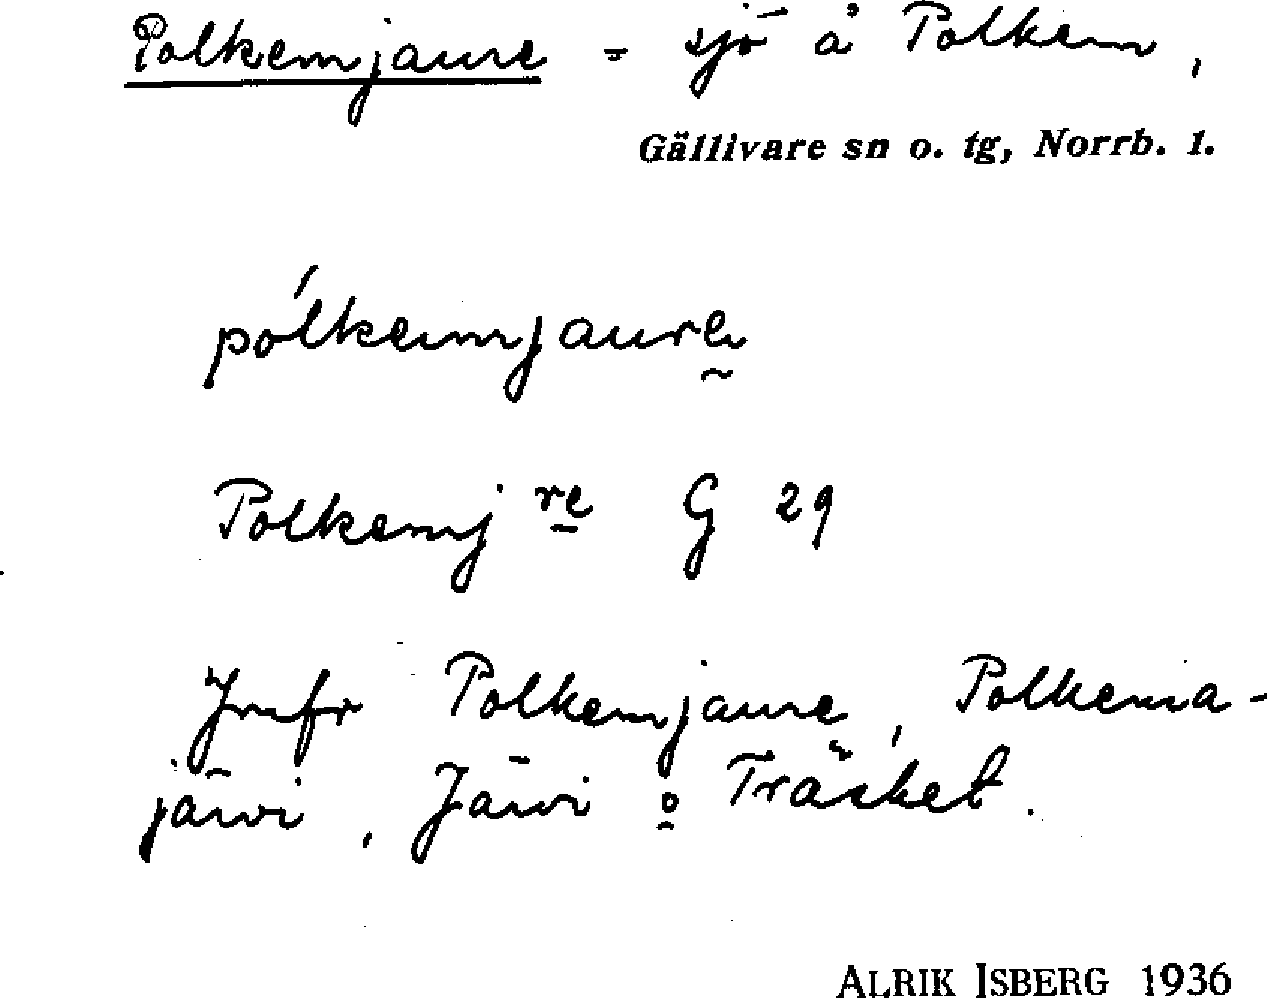 Polkemjaure - sjö å Polkem,
Gällivare sn o. tg, Norrb. 1.
pólkemjaure
Polkemj re G 29
Jmfr Polkemjaure, Polkema-
järvi, Järvi o Träsket.
ALRIK ISBERG 1936